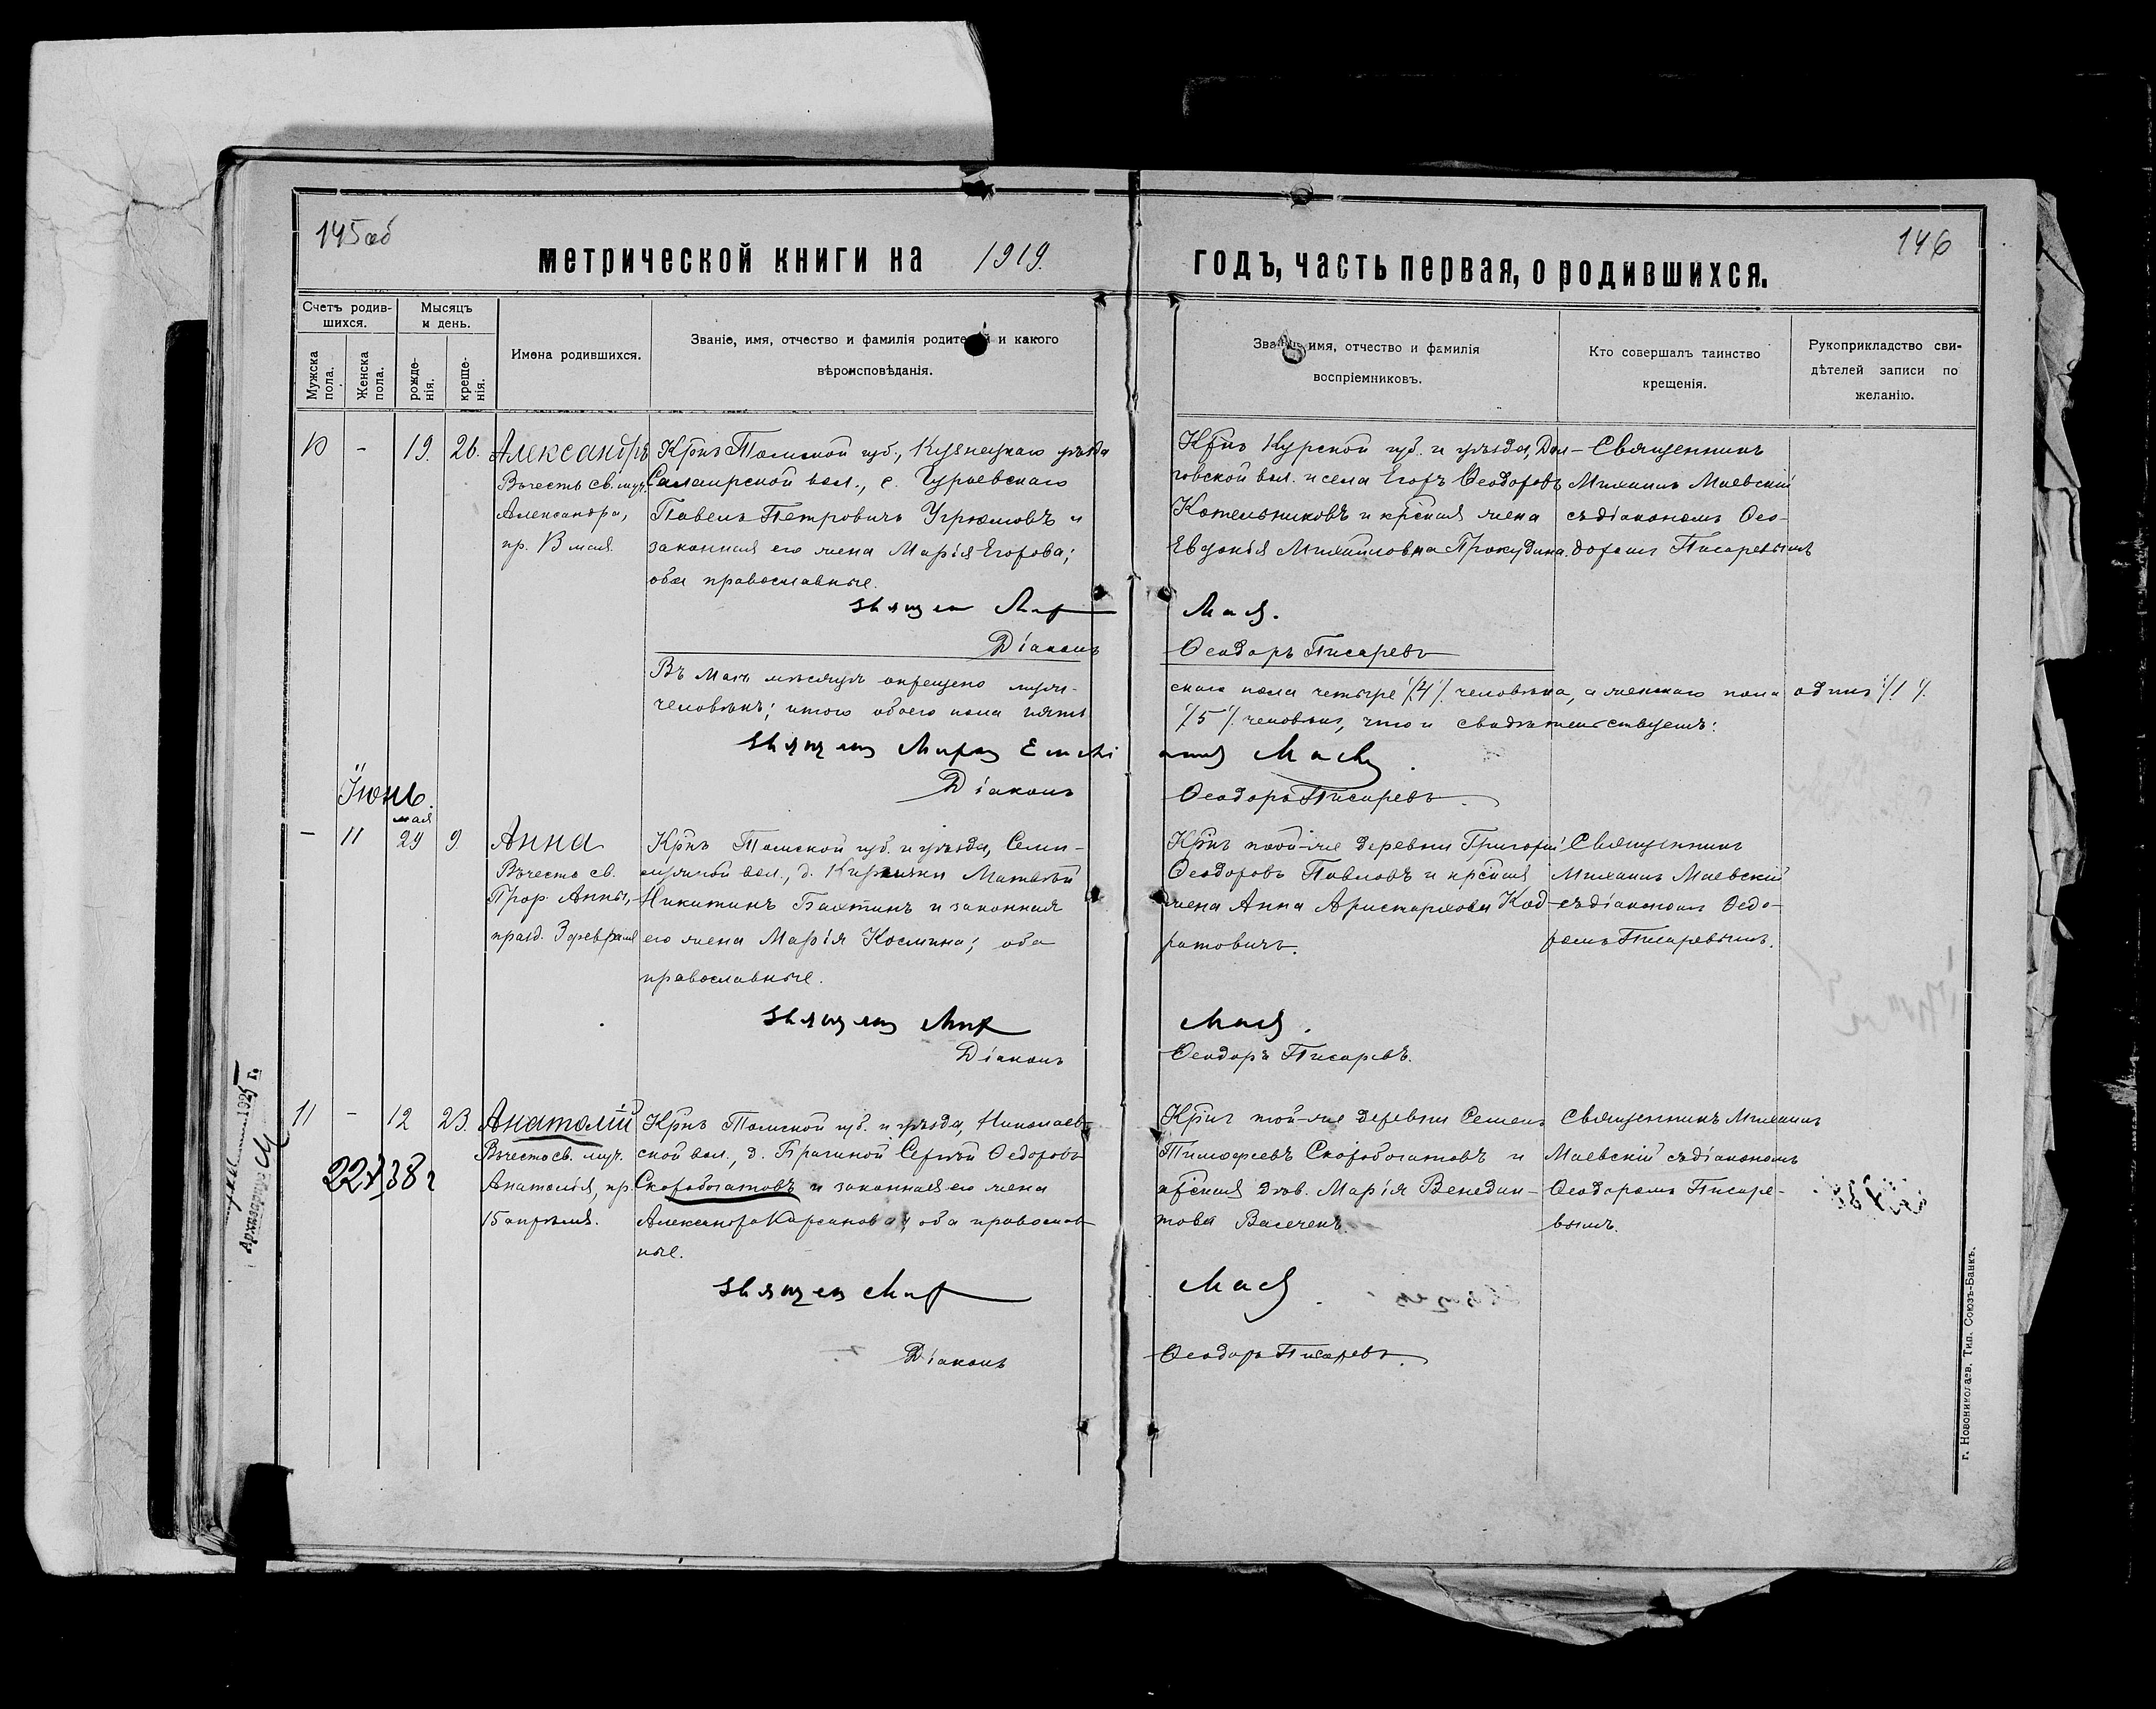 145 об
146
метрической книги на 1919.
годъ, часть первая, о родившихся.
Счетъ родив-
шихся.
Мужска
пола.
Женска
пола.
Мысяцъ
и день.
рожде-
нія.
креще-
нія.
Имена родившихся.
Званіе, имя, отчество и фамилія родителей и какого
вѣроисповѣданія.
имя, отчество и фамилія
воспріемниковъ.
Кто совершалъ таинство
крещенія.
Рукоприкладство сви-
дѣтелей записи по
желанію.
10 - 19. 26.
Александръ
Въ честь св. муч.
Александра,
пр. 13 мая.
Крнъ Томской губ., Кузнецкаго уѣзда
Салаирской вол., с. Гурьевскаго
Павелъ Петровичъ Угрюмовъ и
законная его жена Марія Егорова;
оба православные.
Крнъ Курской губ. и уѣзда, Дол-
говской вол. и села Егоръ Ѳеодоровъ
Котельниковъ и крсная жена
Евдокія Михаиловна Прокудина.
Священникъ
Михаилъ Маевскій
съ діакономъ Ѳео-
доромъ Писаревымъ
Діаконъ Ѳеодоръ Писаревъ
Въ Маѣ мѣсяцѣ окрещено муж-
скаго пола четыре /4/ человѣка, а женскаго пола одинъ /1/
человѣкъ; итого обоего пола пять
/5/ человѣкъ, что и свидѣтельствуемъ:
Діаконъ Ѳеодоръ Писаревъ.
Іюнь.
мая
- 11 29 9.
Анна
Въ честь св.
Прор. Анны,
празд. 3 февраля
Крнъ Томской губ. и уѣзда, Семи-
лужной вол., д. Матвѣй
Никитинъ Бахтинъ и законная
его жена Марія Космина; оба
православные.
Крнъ той-же деревни Григорій
Ѳеодоровъ Павловъ и крсная
жена Анна Аристархова Код-
ратовичъ.
Священникъ
Михаилъ Маевскій
съ діакономъ Ѳедо-
ромъ Писаревымъ.
Діаконъ Ѳеодоръ Писаревъ.
11 - 12 23.
Анатолій
Въ честь св. муч.
Анатолія, пр.
15 апрѣля.
Крнъ Томской губ. и уѣзда, Николаев-
ской вол., д. Брагиной Сергѣй Ѳедоровъ
Скоробогатовъ и законная его жена
Александра оба православ-
ные.
Крнъ той-же деревни Семенъ
Тимофеевъ Скоробогатовъ и
крсная дѣв. Марія Венедик-
това
Священникъ Михаилъ
Маевскій съ діакономъ
Ѳеодоромъ Писаре-
вымъ.
Діаконъ Ѳеодоръ Писаревъ.
г. Новониколаев. Тип. Союзъ-Банкъ.